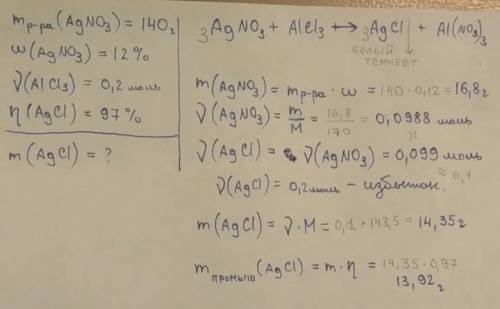 m р-ра (AgNO₃) = 140г
w (AgNO₃) = 12 %
ν (AlCl₃) = 0,2 моль
η (AgCl) = 97 %
m (AgCl) = ?
3AgNO₃ + AlCl₃ ⟷ 3AgCl↓ + Al(NO₃)₃
БЕЛЫЙ
ТЕМНЕЕТ
m (AgNO₃) = m р-ра · w = 140 · 0,12 = 16,8г
ν (AgNO₃) = m/M = 16,8/170 = 0,0988 моль
ν (AgCl) = ν (AgNO₃) = 0,099 моль
≈ 0,1
ν (AgCl) = 0,2 моль – избыток.
m (AgCl) = ν · M = 0,1 · 143,5 = 14,35г
m промыш (AgCl) = m · η = 14,35 · 0,97
13,92г